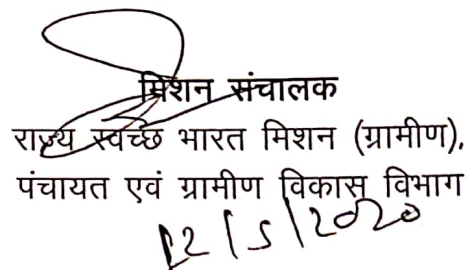 मिशन संचालक
राज्य स्वच्छ भारत मिशन (ग्रामीण),
पंचायत एवं ग्रामीण विकास विभाग
12/5/2020